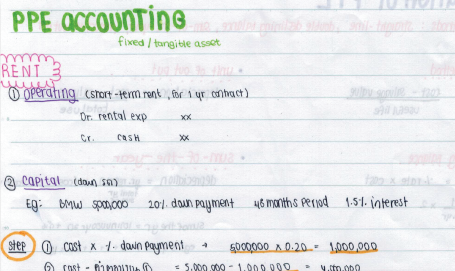 PPE ACCOUNTING
fixed / tangible asset
RENT
① operating (short-term rent, for 1 yr contract)
Dr. rental exp xx
Cr. cash xx
② capital (down)
Eg: BMW 5000,000 20% down payment 48 months period 1.5% interest
step ① cost x % down payment → 5000000 x 0.20 = 1,000,000
② cost - = 5,000,000 - 1,000,000 = 4,000,000